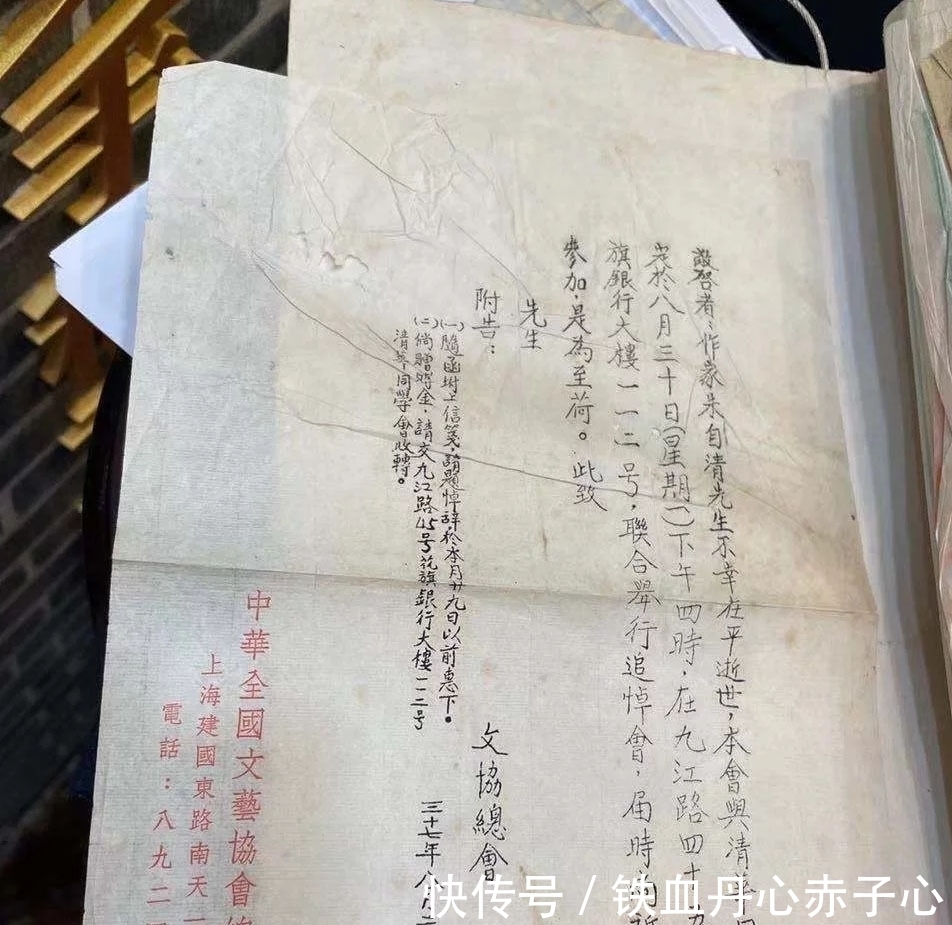 敬啓者：作家朱自清先生不幸在平逝世，本會與清華同
定於八月三十日（星期一）下午四時，在九江路四十五
旗銀行大樓一一二号，聯合舉行追悼會，届時尚祈
參加，是為至荷。此致
先生
附告：
（一）隨函坿上信箋，請題悼辞於本月廿九日以前惠下。
（二）倘贈賻金，請交九江路45号花旗銀行大樓一一二号
清華同學會收轉。
文協總會
三十七年八月
中華全國文藝協會總
上海建國東路南天一
電話：八九二
快传号 / 铁血丹心赤子心